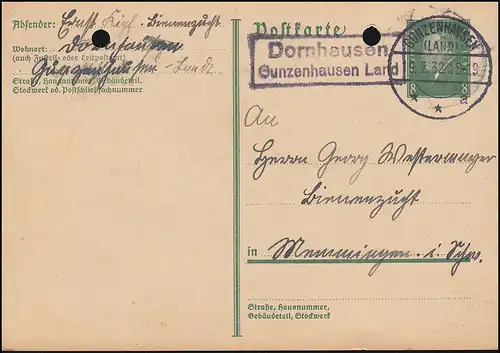 Absender: Ernst Kipf - Bienenzucht
Wohnort: Dornhausen
(auch Zustell- oder Leitpostamt)
Gunzenhausen - Land
Straße, Hausnummer, Gebäudeteil,
Stockwerk od. Postschließfachnummer
Postkarte
Dornhausen
Gunzenhausen Land
GUNZENHAUSEN
(LAND)
8
8
a
An
Herrn Georg Westermayer
Bienenzucht
in Memmingen i. Schw.
Straße, Hausnummer,
Gebäudeteil, Stockwerk